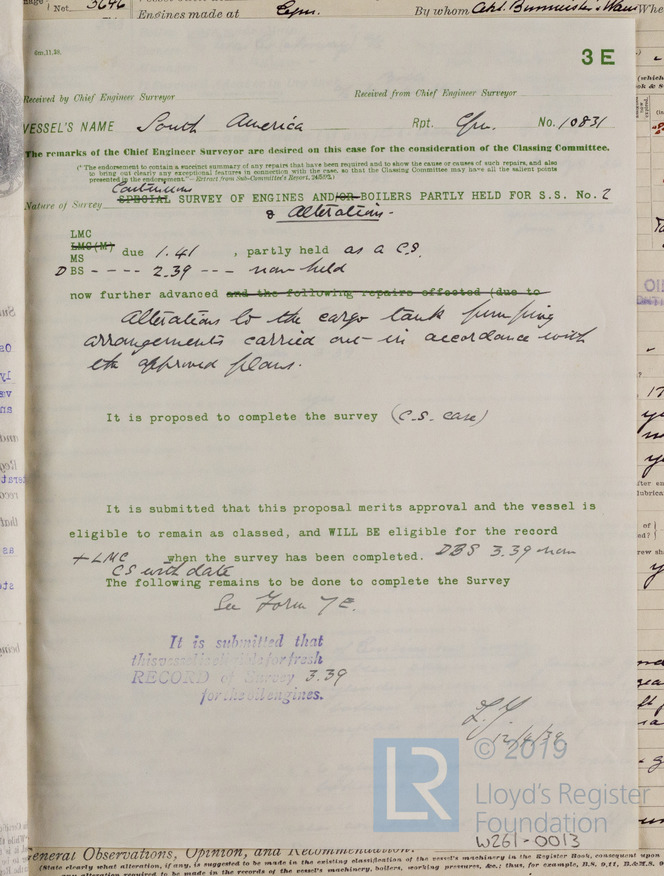 No. 3646
Engines made at Cpn. By whom Akt. Burmeister & Wain Whe
6m,11.38.
3E
Received by Chief Engineer Surveyor Received from Chief Engineer Surveyor
VESSEL'S NAME South America Rpt. Cpn. No. 10831
The remarks of the Chief Engineer Surveyor are desired on this case for the consideration of the Classing Committee.
(* The endorsement to contain a succinct summary of any repairs that have been required and to show the cause or causes of such repairs, and also
to bring out clearly any exceptional features in connection with the case, so that the Classing Committee may have all the salient points
presented in the endorsement."—Extract from Sub-Committee's Report,
Continuous
Nature of Survey SPECIAL SURVEY OF ENGINES AND/OR BOILERS PARTLY HELD FOR S.S. No. 2
& Alterations-
LMC
LMC(M) due 1.41, partly held as a C.S.
MS
DBS ---- 2.39 --- now held
now further advanced and the following repairs effected (due to
Alterations to the cargo tank pumping
arrangements carried out in accordance with
the approved plans.
It is proposed to complete the survey (C.S. case)
It is submitted that this proposal merits approval and the vessel is
eligible to remain as classed, and WILL BE eligible for the record
+LMC when the survey has been completed. DBS 3.39 now
CS with date
The following remains to be done to complete the Survey
See Form 7E.
It is submitted that
this vessel is eligible for fresh
RECORD of Survey 3.39
for the oil engines.
12/4/39
© 2019
LR
Lloyd's Register
Foundation
W261-0013
General Observations, Opinion, and Recommendation:
(State clearly what alteration, if any, is suggested to be made in the existing classification of the vessel's machinery in the Register Book, consequent upon
any alteration required to be made in the records of the vessel's machinery, boilers, working pressures, &c.; thus, for example, B.S. 9,11, B.&M.S. 9